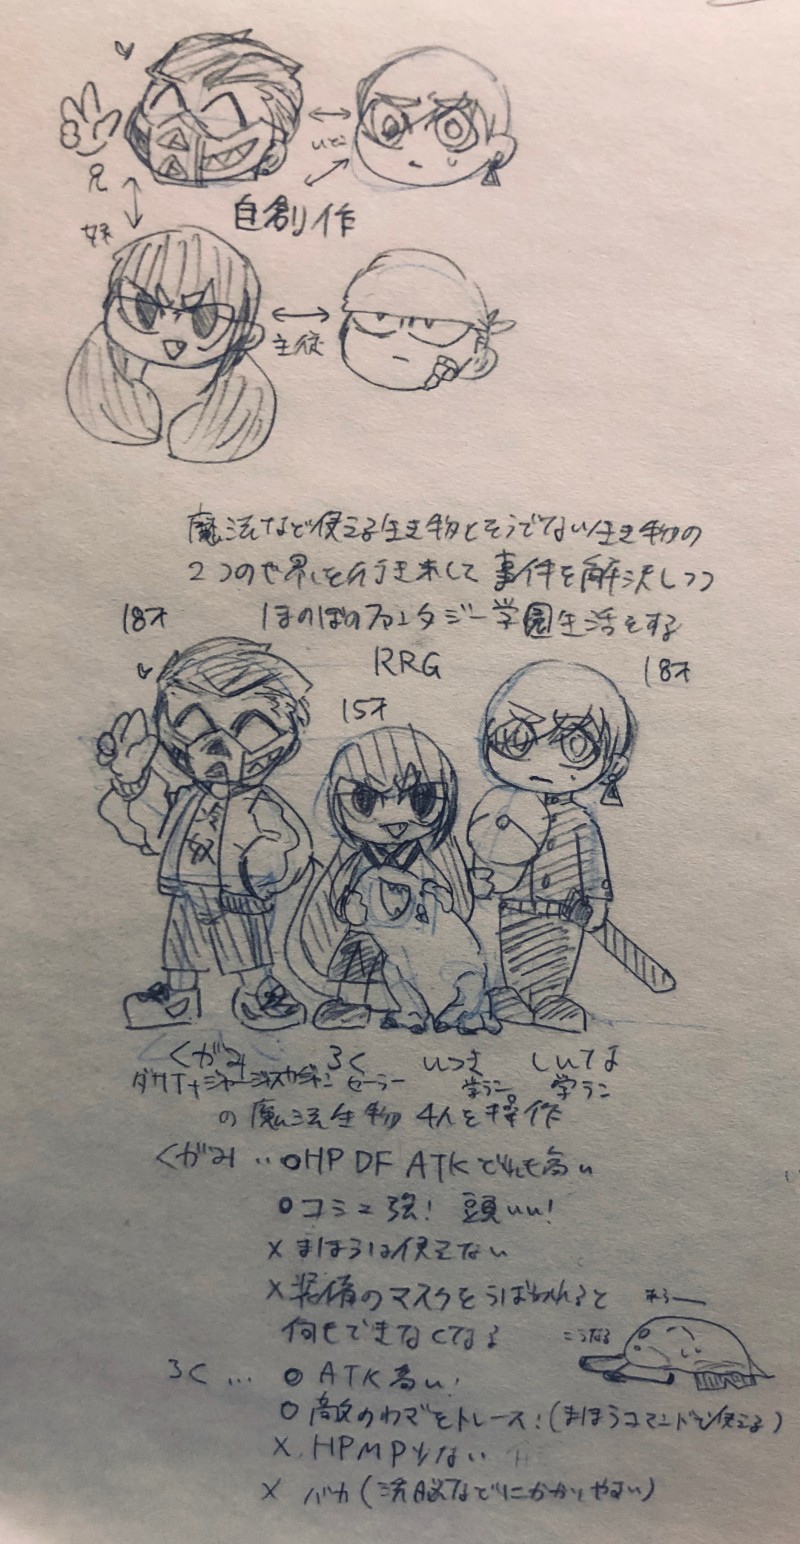 兄
いとこ
自創作
妹
主従
魔法など使える生き物とそうでない生き物の
2つのせ界を行き来して事件を解決しつつ
ほのぼのファンタジー学園生活をする
18才
RRG
15才
18才
くがみ ろく いつき しいてな
ダサT+ジャージ+スカジャン セーラー 学ラン 学ラン
の魔法生物 4人を操作
くがみ‥○HP DF ATK どれも高い
○コミュ強! 頭いい!
×まほうは使えない
×装備のマスクをうばわれると
何もできなくなる
こうなる
ろく…○ATK高い!
○敵のわざをトレース!(まほうコマンドで使える)
×HPMP少ない
×バカ(洗脳などにかかりやすい)